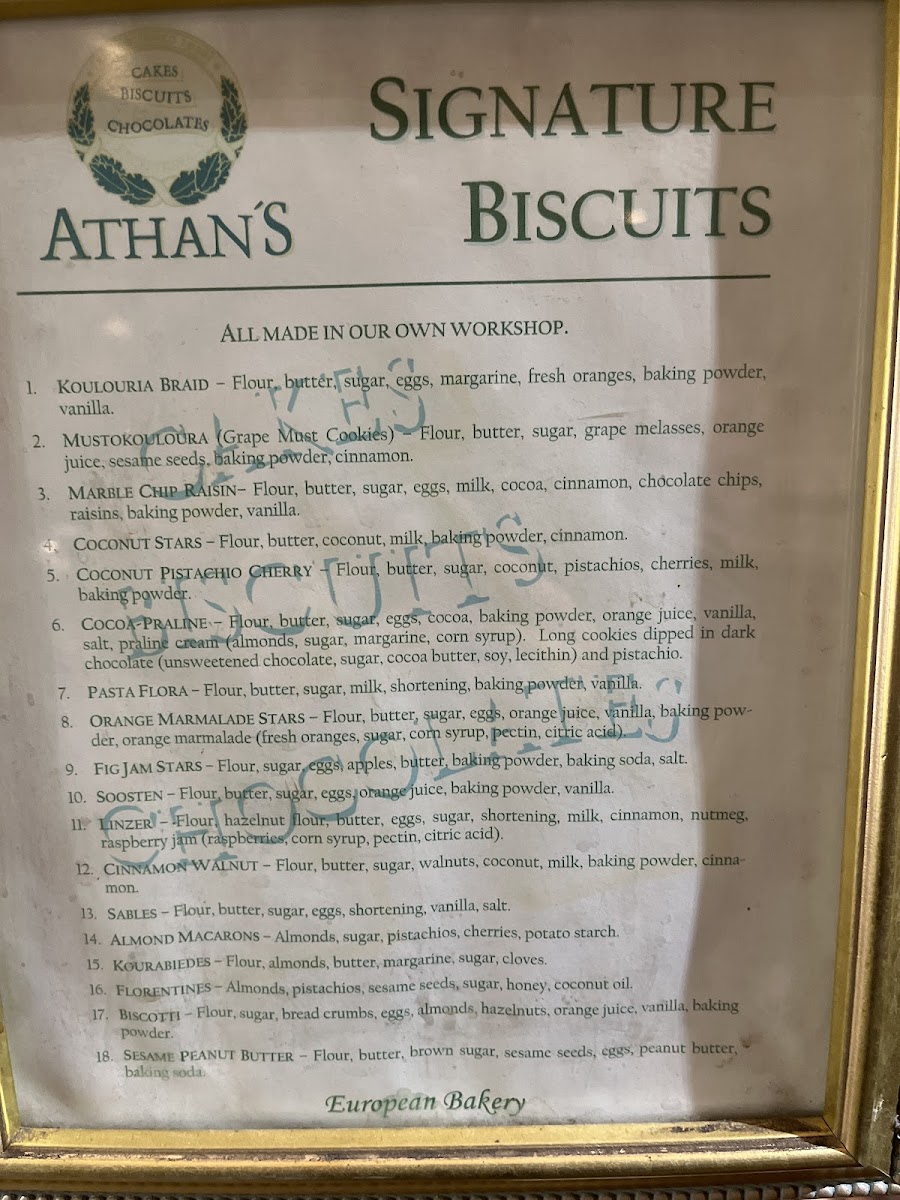 CAKES
BISCUITS
CHOCOLATES
ATHAN'S
SIGNATURE
BISCUITS
ALL MADE IN OUR OWN WORKSHOP.
1. KOULOURIA BRAID – Flour, butter, sugar, eggs, margarine, fresh oranges, baking powder,
vanilla.
2. MUSTOKOULOURA (Grape Must Cookies) – Flour, butter, sugar, grape melasses, orange
juice, sesame seeds, baking powder, cinnamon.
3. MARBLE CHIP RAISIN– Flour, butter, sugar, eggs, milk, cocoa, cinnamon, chocolate chips,
raisins, baking powder, vanilla.
4. COCONUT STARS – Flour, butter, coconut, milk, baking powder, cinnamon.
5. COCONUT PISTACHIO CHERRY – Flour, butter, sugar, coconut, pistachios, cherries, milk,
baking powder.
6. COCOA-PRALINE – Flour, butter, sugar, eggs, cocoa, baking powder, orange juice, vanilla,
salt, praline cream (almonds, sugar, margarine, corn syrup). Long cookies dipped in dark
chocolate (unsweetened chocolate, sugar, cocoa butter, soy, lecithin) and pistachio.
7. PASTA FLORA – Flour, butter, sugar, milk, shortening, baking powder, vanilla.
8. ORANGE MARMALADE STARS – Flour, butter, sugar, eggs, orange juice, vanilla, baking pow-
der, orange marmalade (fresh oranges, sugar, corn syrup, pectin, citric acid).
9. FIG JAM STARS – Flour, sugar, eggs, apples, butter, baking powder, baking soda, salt.
10. SOOSTEN – Flour, butter, sugar, eggs, orange juice, baking powder, vanilla.
11. LINZER – Flour, hazelnut flour, butter, eggs, sugar, shortening, milk, cinnamon, nutmeg,
raspberry jam (raspberries, corn syrup, pectin, citric acid).
12. CINNAMON WALNUT – Flour, butter, sugar, walnuts, coconut, milk, baking powder, cinna-
mon.
13. SABLES – Flour, butter, sugar, eggs, shortening, vanilla, salt.
14. ALMOND MACARONS – Almonds, sugar, pistachios, cherries, potato starch.
15. KOURABIEDES – Flour, almonds, butter, margarine, sugar, cloves.
16. FLORENTINES – Almonds, pistachios, sesame seeds, sugar, honey, coconut oil.
17. BISCOTTI – Flour, sugar, bread crumbs, eggs, almonds, hazelnuts, orange juice, vanilla, baking
powder.
18. SESAME PEANUT BUTTER – Flour, butter, brown sugar, sesame seeds, eggs, peanut butter,
baking soda.
CAKES
BISCUITS
CHOCOLATES
European Bakery